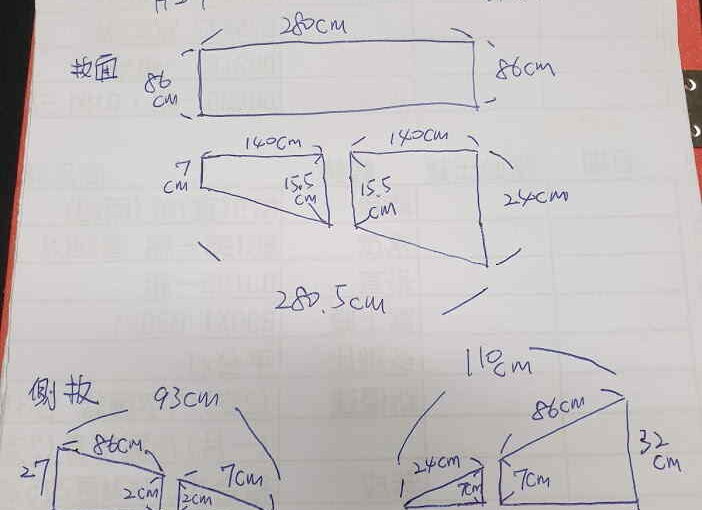 280cm
板面
86
cm
86cm
140cm
140cm
7
cm
15.5
cm
15.5
cm
24cm
280.5cm
側板
93cm
110
cm
86cm
86cm
27
2cm
2cm
7cm
24cm
7cm
7cm
32
cm